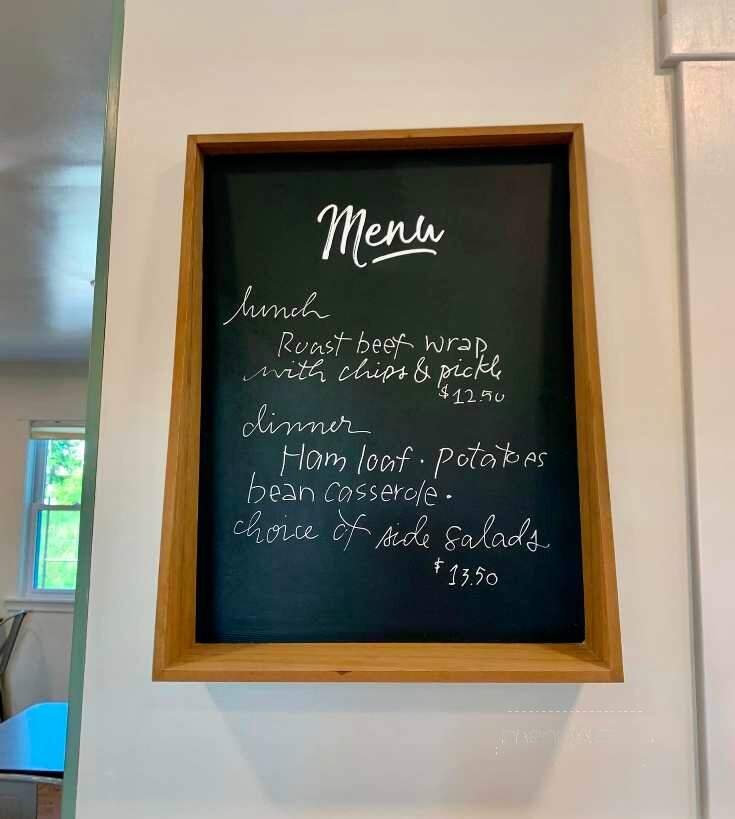 Menu
lunch
Roast beef wrap
with chips & pickle
$12.50
dinner
Ham loaf. potatoes
bean casserole.
choice of side salads
$13.50